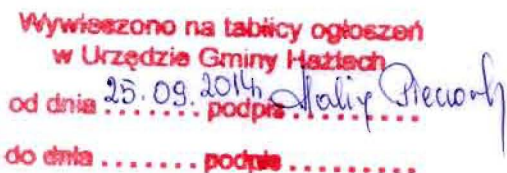 Wywieszono na tablicy ogłoszeń
w Urzędzie Gminy Hażlach
od dnia 25.09.2014r. podpis
do dnia ........ podpis ..........